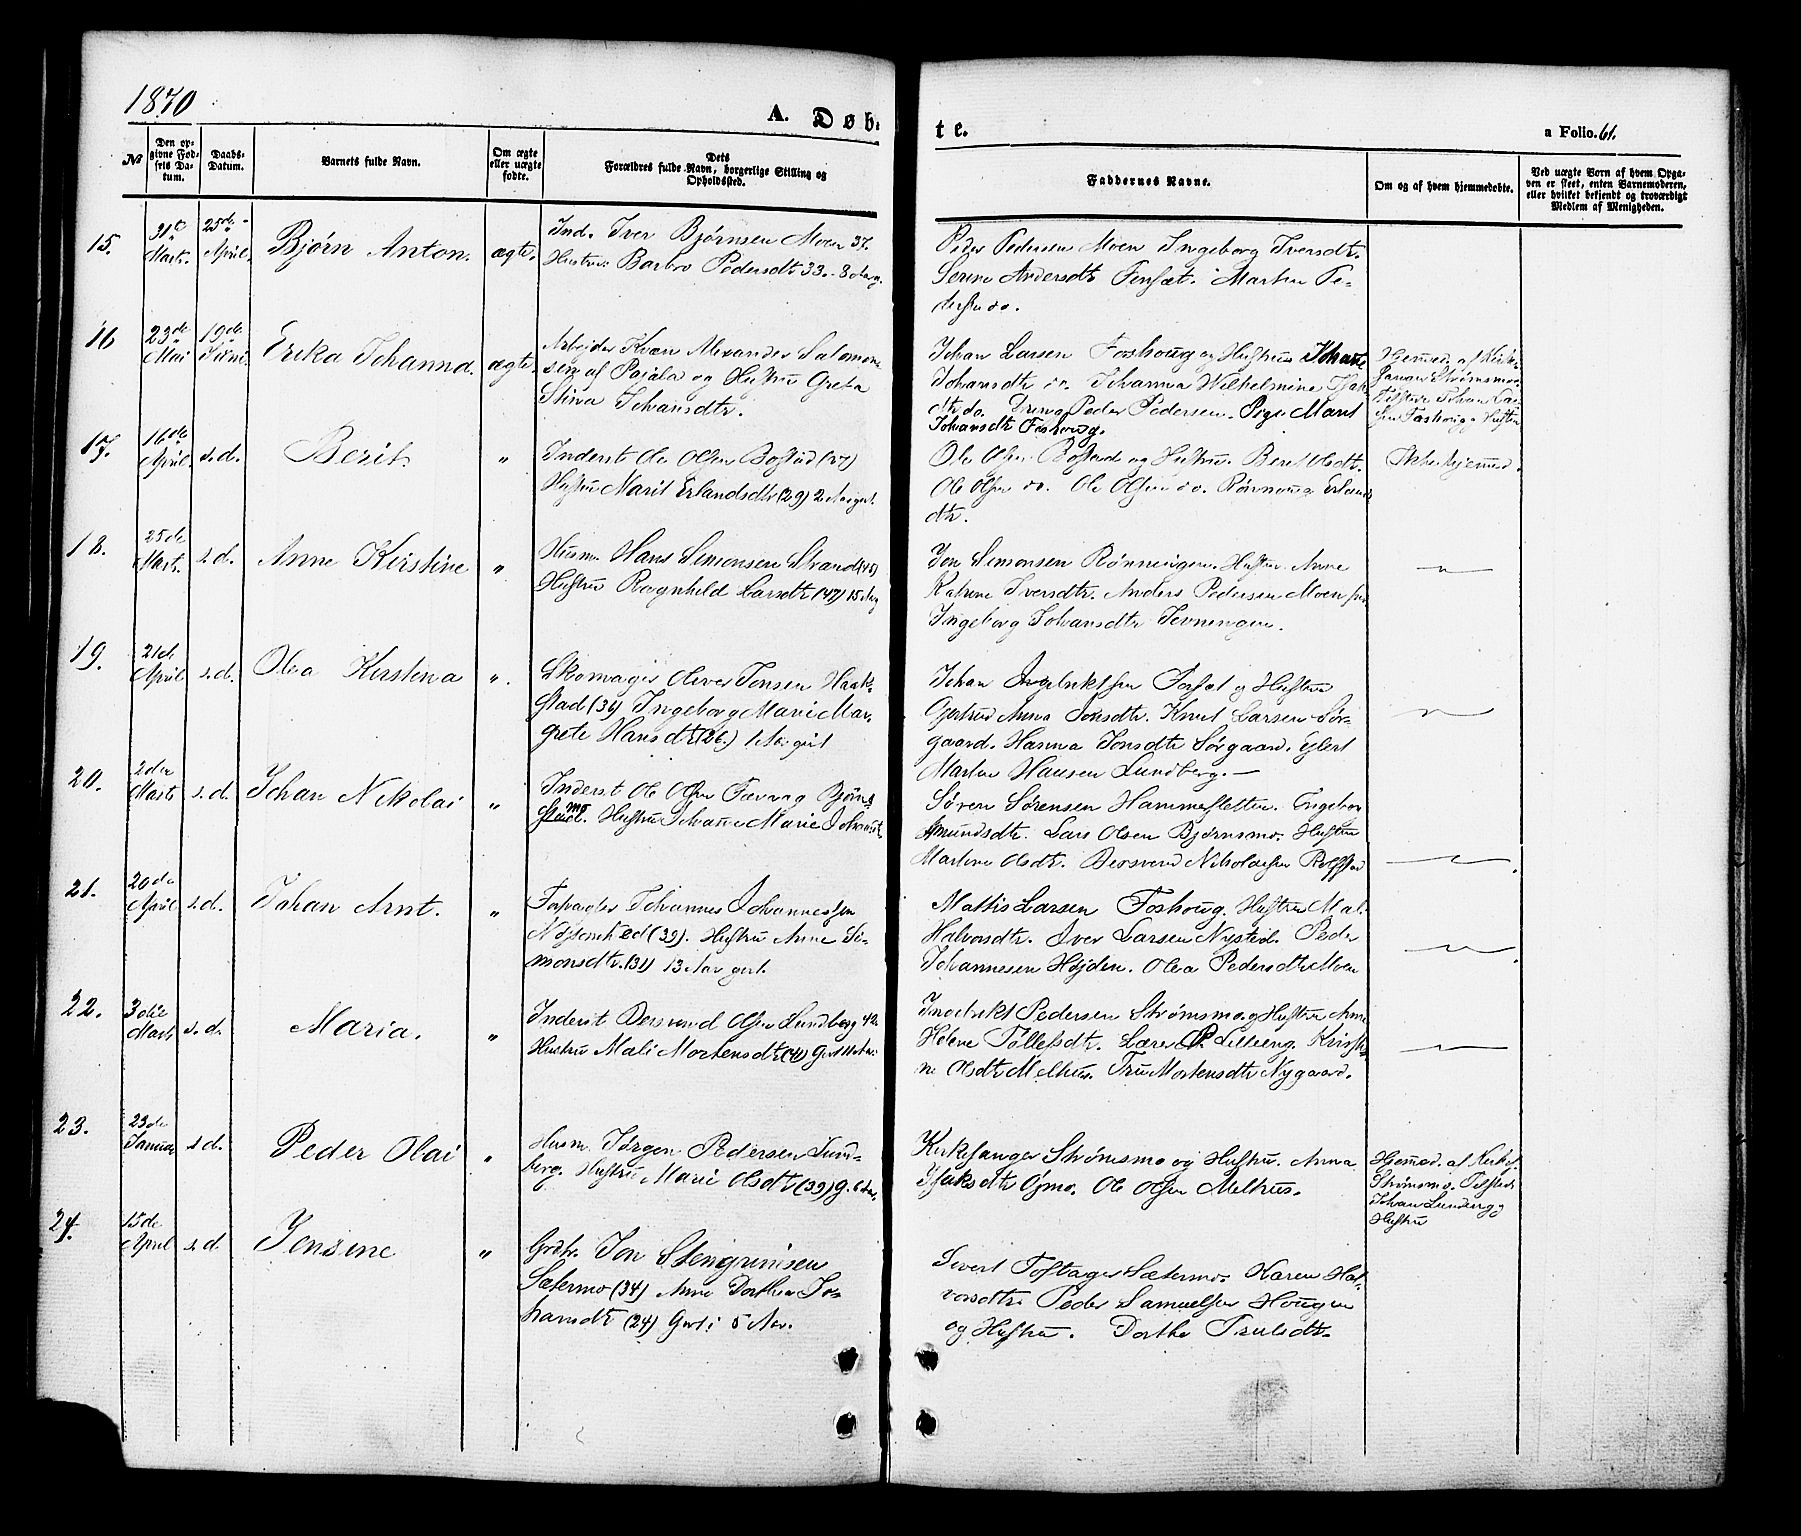 1870
A. Døb-
te.
a Folio. 61.
No
Den op-
givne Fød-
sels Da-
tum.
Daabs-
Datum.
Barnets fulde Navn.
Om ægte
eller uægte
fødte.
Dets
Forældres fulde Navn, borgerlige Stilling og
Opholdssted.
Faddernes Navne.
Om og af hvem hjemmedøbte.
Ved uægte Børn af hvem Opga-
ven er skeet, enten Barnemoderen,
eller hvilket bekjendt og troværdigt
Medlem af Menigheden.
15.
31te
Marts.
25de
April.
Bjørn Anton.
ægte.
Ind. Iver Bjørnsen Moen 37.
Hustru Barbro Pedersdtr 33.- 8 Aar g.
Peder Pedersen Moen Ingeborg Iversdtr.
Serine Andersdtr Fensæt. Martin Pe-
dersen do.
16
23de
Mai
19de
Juni.
Erika Johanna.
ægte.
Arbejder Kvæn Alexander Salomon-
sen af Pajala og Hustru Greta
Stina Johansdtr.
Johan Larsen Foshoug og Hustru Johanne
Johansdtr do. Johanna Wilhelmine
dtr do. Dreng Peder Pedersen. Pige Marit
Johansdtr Foshoug.
Hjemmed. af Kirke-
sanger Strømsmo.
Tilstede Johan Lar-
sen Foshoug og Hustru
17.
16de
April.
s.d.
Berit.
"
Inderst Ole Olsen Bostad (27)
Hustru Marit Erlandsdtr (29) 2 Aar givt.
Ole Olsen Bostad og Hustru. Beret Olsdtr.
Ole Olsen do. Ole Olsen do. Rønnaug Erlands-
dtr.
Ikke hjemmed.
18.
25de
Marts.
s.d.
Anne Kirstine
"
Husm. Hans Simonsen Strand (45)
Hustru Ragnhild Larsdtr (47) 15 Aar g
Jon Simonsen Rønningen. Hustru Anne
Katrine Iversdtr. Anders Pedersen Moen
Ingeborg Johansdtr
19.
21de
April
s.d.
Olea Kirstina
".
Skomager Oliver Jonsen Haak-
stad (36) Ingeborg Marie Mar-
grete Hansdtr (26.) 1 Aar givt
Johan Ingebrigtsen Fossæt og Hustru
Gjertrud Anna Jonsdtr. Knut Larsen Sør-
gaard. Hanna Jonsdtr Sørgaard. Eilert
Martin Hansen Lundberg. —
20.
2den
Marts
s.d.
Johan Nikolai
"
Inderst Ole Olsen Bjørns-
mo. Hustru Johanne Marie
Søren Sørensen Hammersletten. Ingebor
Amundsdtr. Lars Olsen Bjørnsmo. Hustru
Martine Olsdtr. Bersvend Nikolaisen
21.
20de
April
s.d.
Johan Arnt.
"
Johannes Johannessen
(39). Hustru Anne Si-
monsdtr. (31) 13 Aar givt.
Mattis Larsen Foshoug. Hustru Mali
Halvorsdtr. Iver Larsen Nysted. Peder
Johannesen Højden. Olea Pedersdtr Moen
22.
3die
Marts
s.d.
Maria.
"
Inderst Bersvend Olsen Lundberg 42
Hustru Mali Mortensdtr (41) Givt 11 Aar.
Ingebrikt Pedersen Strømsmo og Hustru Anne
Helene Tollefsdtr. Lærer P. Lilleeng. Kristi-
ne Olsdtr Melhus. Mortensdtr Nygaard.
23.
23de
Januar
s.d.
Peder Olai
"
Husm. Jørgen Pedersen Lund-
berg. Hustru Marie Olsdtr (39) g. 6 Aar.
Kirkesanger Strømsmo og Hustru. Anna
Isaksdtr Øjmo. Ole Olsen Melhus.
Hjemmed. af Kirkes.
Strømsmo. Tilstede
Johan Lundberg og
Hustru
24.
15de
April
s.d.
Jensine
"
Grdbr. Jon Stengrimsen
Sætermo (34) Anne Dorthea Jo-
hansdtr (24) Givt i 5 Aar.
Sivert Toftager Sætermo. Karen Hal-
vorsdtr. Peder Samuelsen Hougen
og Hustru. Dorthe Trulsdtr.